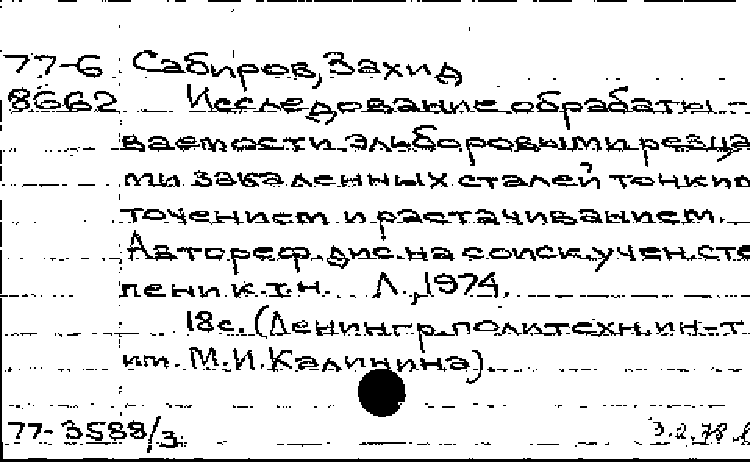 77-6 Сабиров, Захид
8662 Исследование обрабаты-
ваемости эльборовыми резца
ми закаленных сталей тонким
точением и растачиванием.
Автореф. дис. на соиск. учен. сте
пени к.т.н. Л., 1974.
18с. (Ленингр. политехн. ин-т
им. М.И. Калинина).
77-3588/3